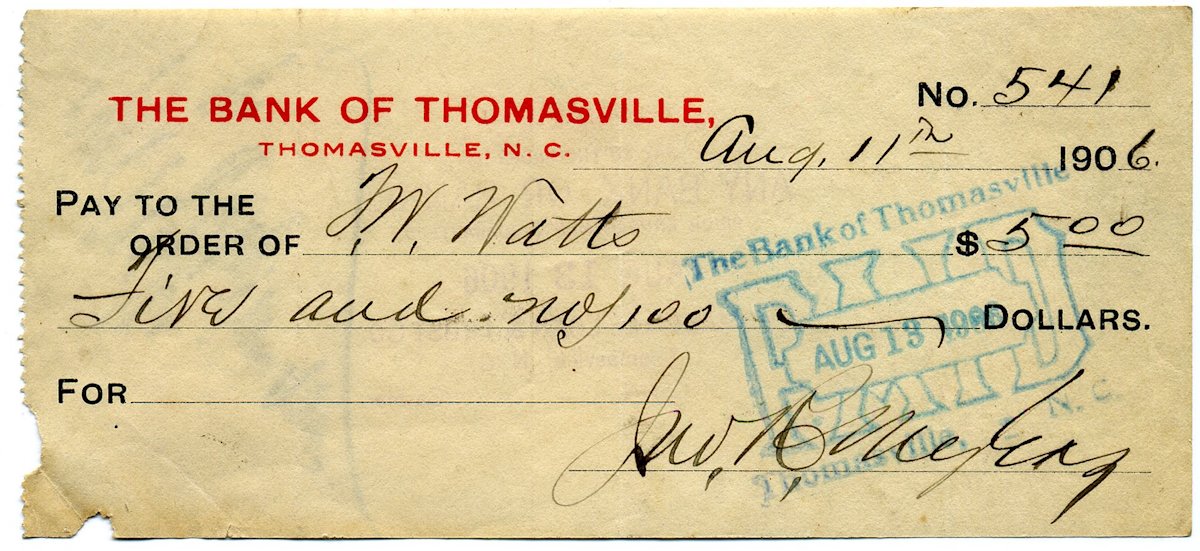 No. 541
THE BANK OF THOMASVILLE,
THOMASVILLE, N. C.
Aug. 11th 1906.
PAY TO THE
ORDER OF W. Watts $ 5.00
Five and no/100 DOLLARS.
The Bank of Thomasville
PAID
AUG 13 1906
Thomasville, N. C.
FOR
Jno. R.